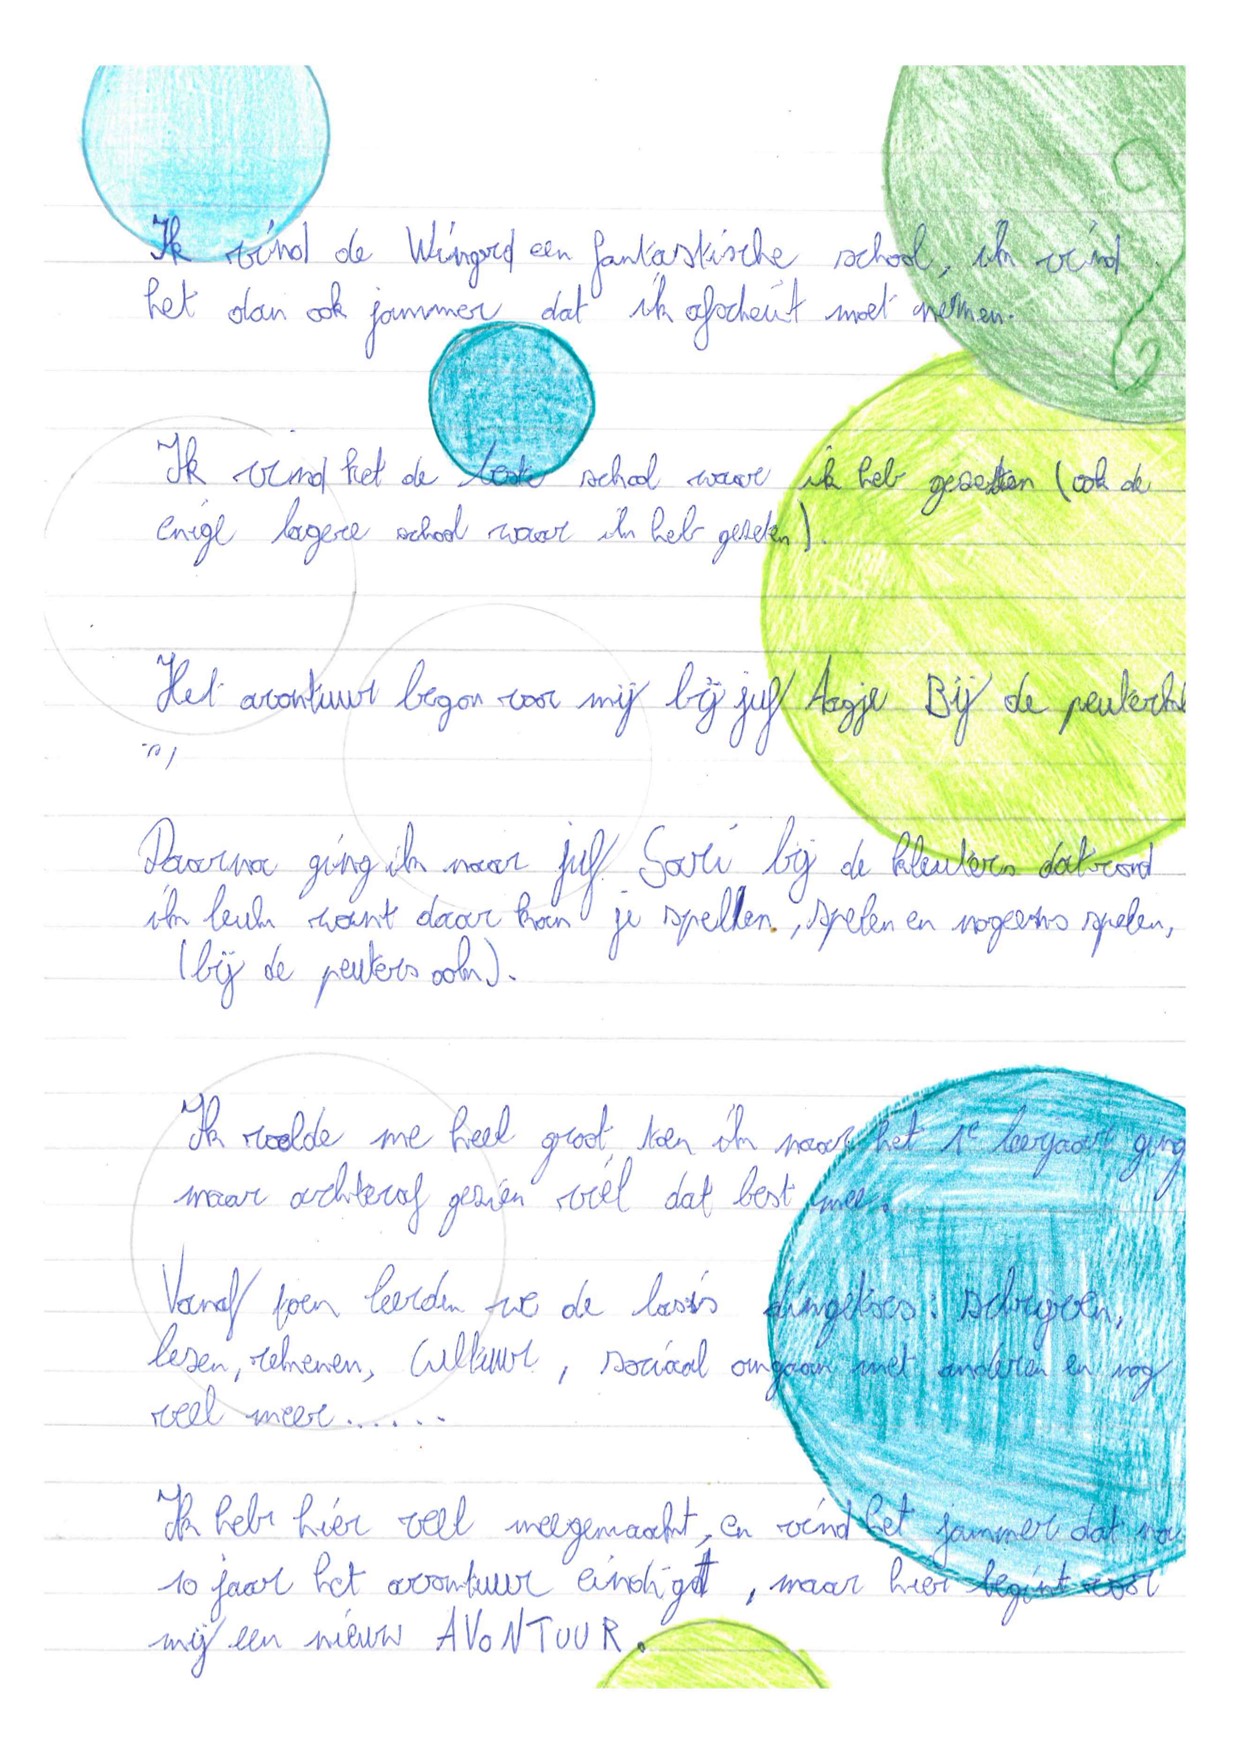 Ik vind de Wijngerd een fantastische school, ik vind
het dan ook jammer dat ik afscheit moet nemen.
Ik vind het de beste school waar ik heb gezeten (ook de
enige lagere school waar ik heb gezeten).
Het avontuur begon voor mij bij juf Aagje Bij de
Daarna ging ik naar juf Sari bij de kleuters dat vond
ik leuk want daar kan je spellen, spelen en nogeens spelen,
(bij de peuters ook).
Ik voelde me heel groot, toen ik naar het 1e leerjaar ging
maar achteraf gezien viel dat best mee.
Vanaf toen leerden we de basis dingetjes: schrijven,
lezen, rekenen, Cultuur, sociaal omgaan met anderen en nog
veel meer......
Ik heb hier veel meegemaakt, en vind het jammer dat na
10 jaar het avontuur eindigt, maar hier begint voor
mij een nieuw AVONTUUR.